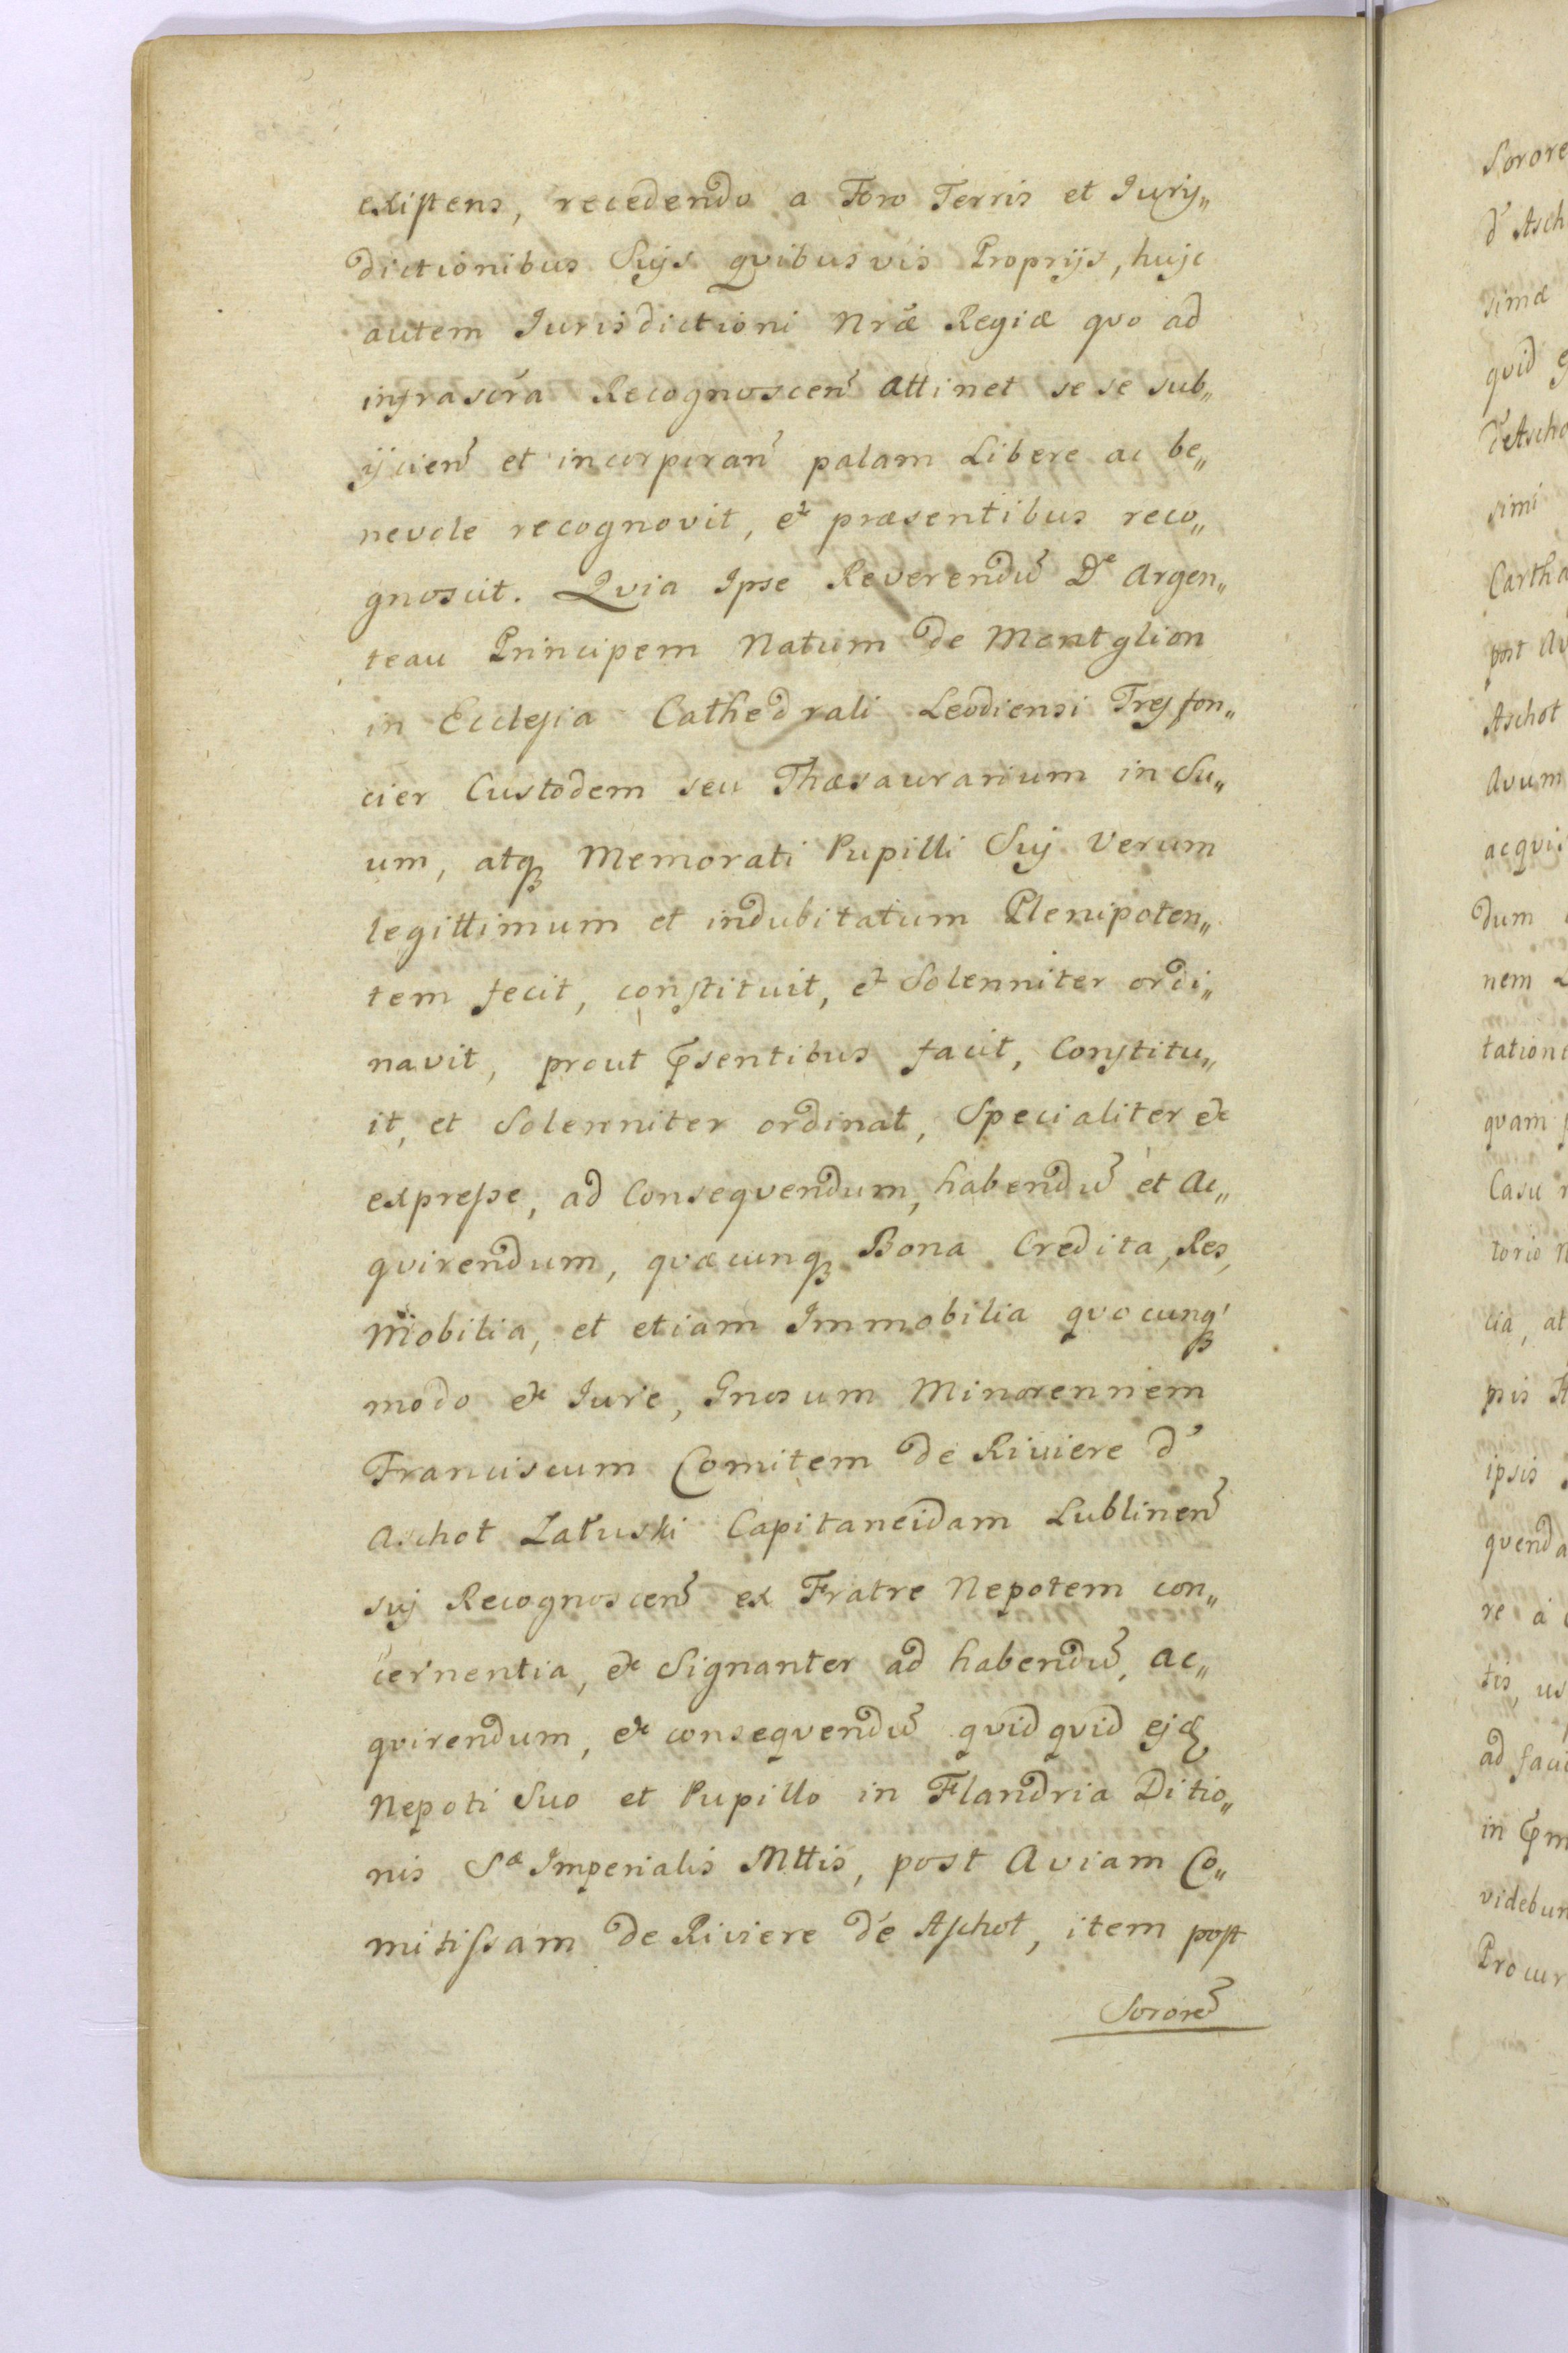 existens, recedendo a Foro Terris et Jurij„
dictionibus Suijs quibusvis Proprijs, hujc
autem Jurisdictioni Nræ Regiæ quo ad
infrascra Recognoscen attinet se se sub„
ijcien et incorporan palam Libere ac be„
nevole recognovit, et præsentibus reco„
gnoscit. Qvia Ipse Reverendu De Argen„
teau Principem Natum de Montglion
in Ecclesia Cathedrali Leodiensi Tresfon„
cier Custodem seu Thæsaurarium in Su„
um, atq Memorati Pupilli Suij Verum
legittimum et indubitatum Plenipoten„
tem fecit, constituit, et Solenniter ordi„
navit, prout Psentibus facit, Constitu„
it, et Solenniter ordinat, Specialiter et
expresse, ad Consequendum, habendu et Ac„
qvirendum, qvæcunq Bona Credita, Res,
Mobilia, et etiam Immobilia qvocunq
modo et Jure, Gnosum Minorennem
Franciscum Comitem de Riviere d'
Aschot Załuski Capitaneidam Lublinen
suj Recognoscen ex Fratre Nepotem con„
cernentia, et Signanter ad habendu, ac„
qvirendum, et conseqvendu qvidqvid ejd
Nepoti Suo et Pupillo in Flandria Ditio„
nis Sæ Imperialis Mttis, post Aviam Co„
mitissam de Riviere de Aschot, item post
Sorore
Sorore
d' Asch
simæ
quid
d'Ascho
simi
Cartha
post Av
Aschot
Avum
acqvi
dum
nem
tation
qvam
Casu
torio
cia, at
psis
ipsis
qvenda
re a
tis, us
ad faci
in Pm
videbun
Procur